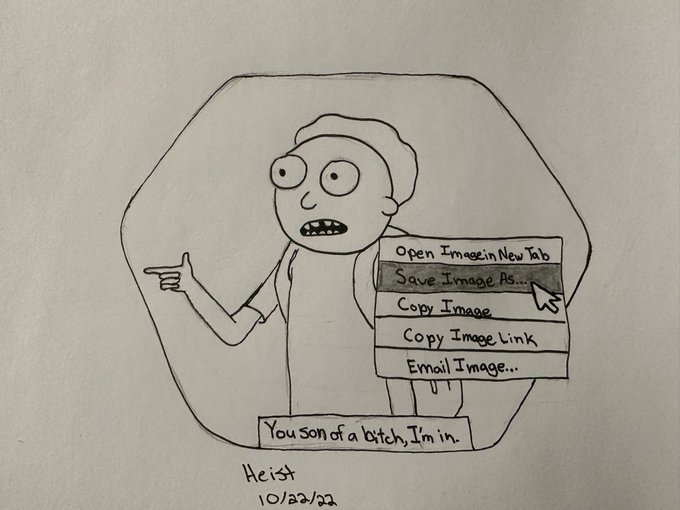 Open Image in New Tab
Save Image As...
Copy Image
Copy Image Link
Email Image...
You son of a bitch, I'm in.
Heist
10/22/22